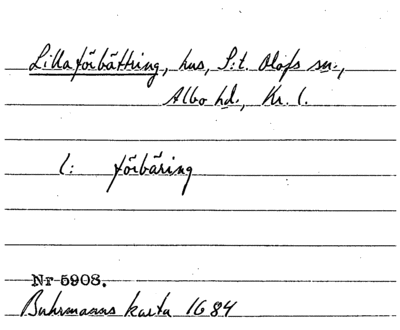 Lilla förbättring, hus, S:t. Olofs sn.,
Albo hd., Kr. l.
l: förbäring
Nr 5908.
Buhrmanns karta 1684